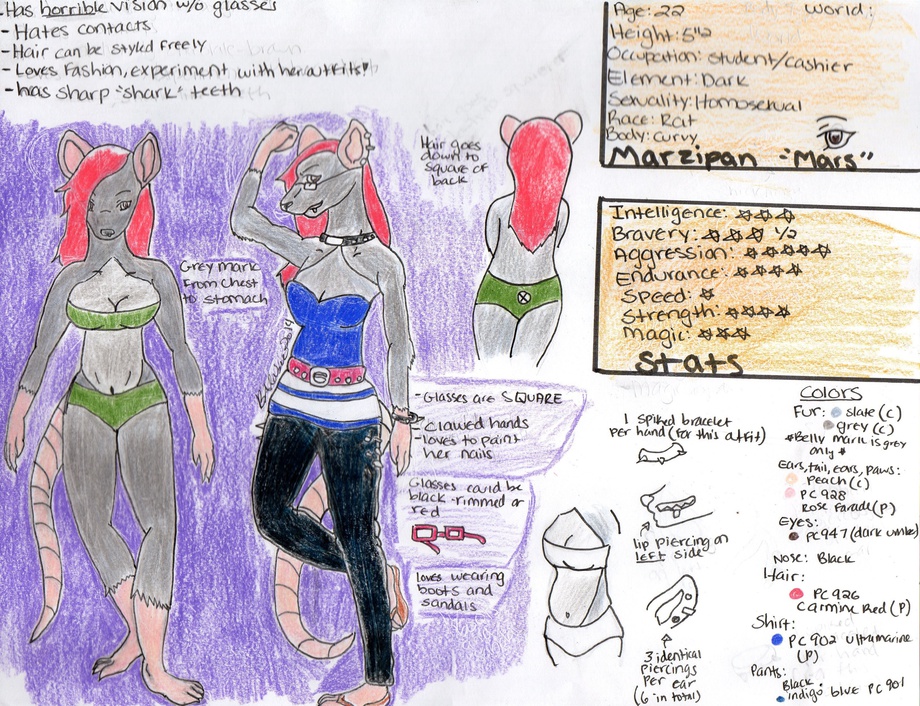 -Has horrible vision w/o glasses
- Hates contacts
- Hair can be styled freely
- Loves Fashion, experiment with her outfits!
- has sharp "shark" teeth
Age: 22
World:
Height: 5'2
Occupation: Student/cashier
Element: Dark
Sexuality: Homosexual
Race: Rat
Body: curvy
Marzipan - "Mars"
Hair goes
down to
square of
back
Grey mark
From chest
to stomach
Intelligence: ☆☆☆
Bravery: ☆☆☆ 1/2
Aggression: ☆☆☆☆☆
Endurance: ☆☆☆☆
Speed: ☆
Strength: ☆☆☆☆
Magic: ☆☆☆
Stats
- Glasses are SQUARE
- Clawed hands
- loves to paint
her nails
Glasses could be
black-rimmed or
red
loves wearing
boots and
sandals
1 spiked bracelet
per hand (for this outfit)
lip piercing on
left side
3 identical
piercings
per ear
(6 in total)
Colors
Fur: slate (c)
grey (c)
*Belly mark is grey
only *
Ears, tail, ears, paws:
Peach (c)
PC 928
Rose Parade (P)
Eyes:
PC947 (dark umber)
Nose: Black
Hair:
PC 926
Carmine Red (P)
Shirt:
PC 902 ultramarine
(P)
Pants:
Black
indigo blue PC 901